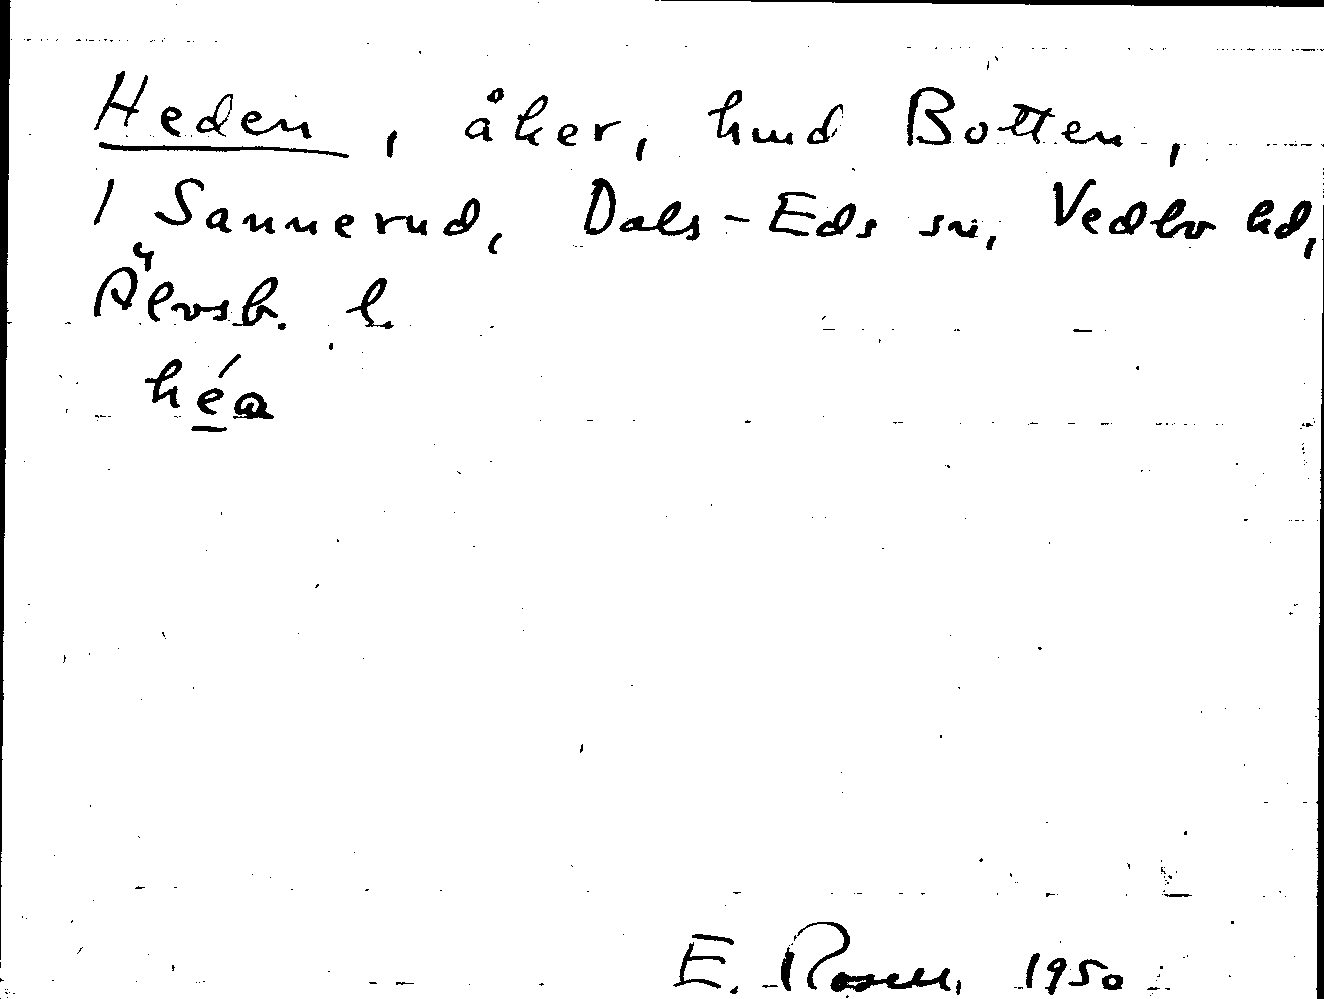 Heden, åker, hmd Botten,
1 Sannerud, Dals-Eds sn, Vedbo hd,
Älvsb. l.
héa
E. Rosell, 1950